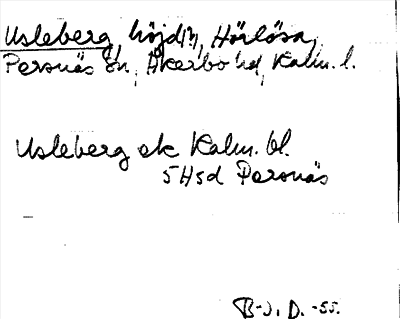 Usleberg, höjd(?), Hörlösa,
Persnäs sn, Åkerbo hd, Kalm. l.
Usleberg ek Kalm. bl.
5 H5d Persnäs
B-J. D. -55.